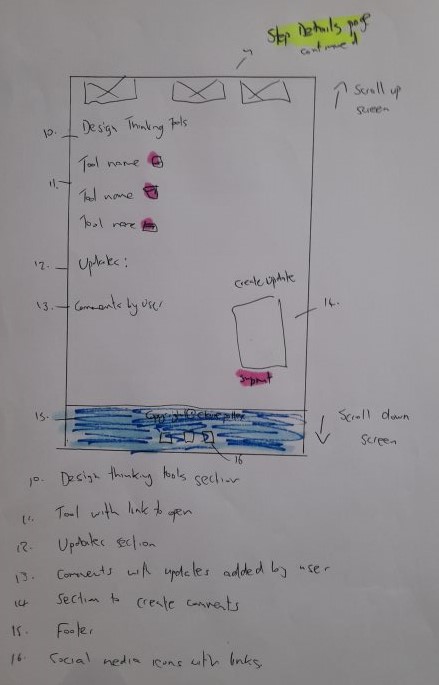 Step Details page
continued
Scroll up
screen
10.
Design Thinking Tools
Tool name
11.
Tool name
Tool name
12.
Updates:
Create update
13.
Comments by user
14.
Submit
15.
Copyright
16
Scroll down
screen
10. Design thinking tools section
11. Tool with link to open
12. Updates section
13. Comments with updates added by user
14 Section to create comments
15. Footer
16. Social media icons with links